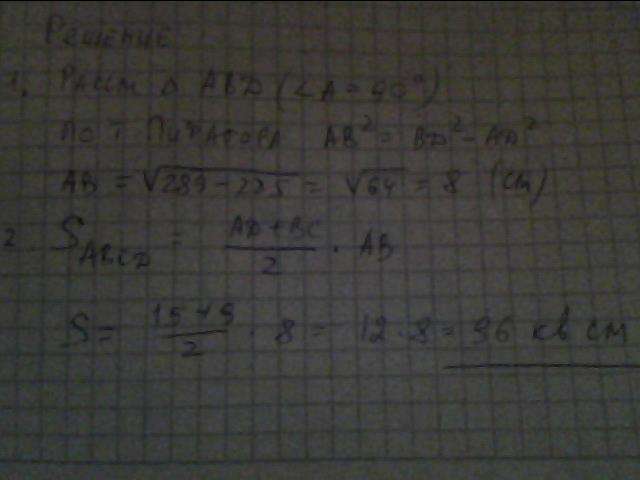 Решение
1. Рассм Δ ABD (∠A = 90°)
по т Пифагора AB² = BD² - AD²
AB = √289-225 = √64 = 8 (см)
2. S ABCD = AD+BC/2 · AB
S = 15+9/2 · 8 = 12 · 8 = 96 кв см